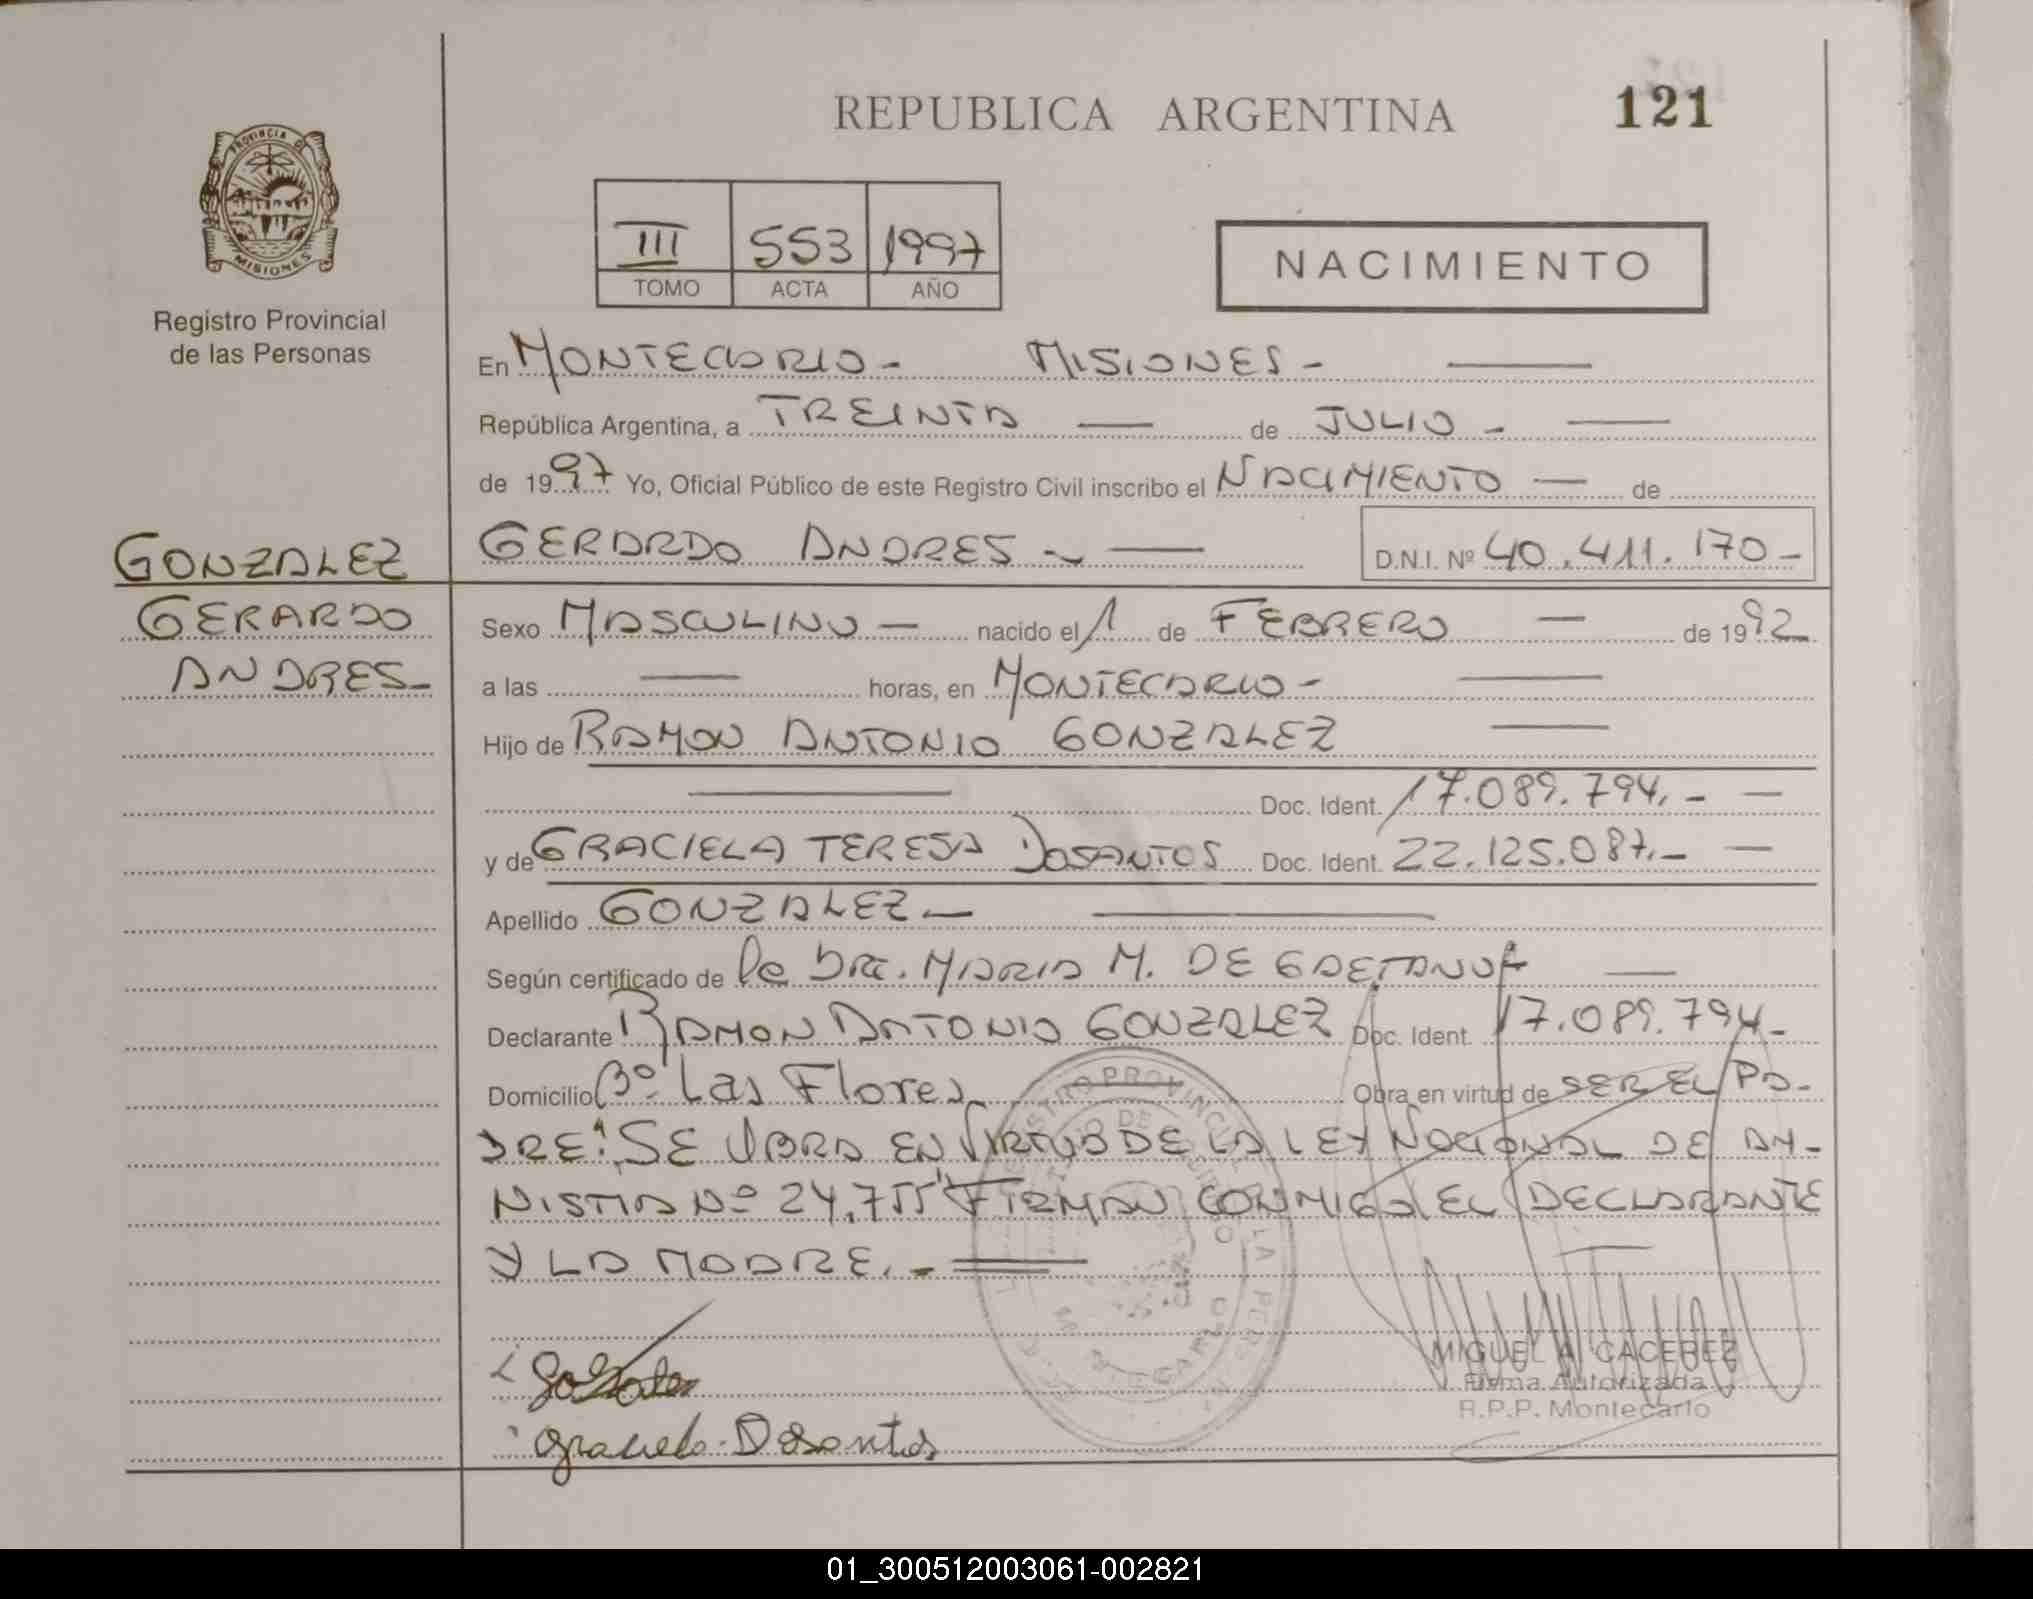 REPUBLICA ARGENTINA
121
PROVINCIA D
MISIONES
Registro Provincial
de las Personas
III 553 1997
TOMO ACTA AÑO
NACIMIENTO
En MONTECARLO - MISIONES -
República Argentina, a TREINTA de JULIO -
de 1997 Yo, Oficial Público de este Registro Civil inscribo el NACIMIENTO de
GERARDO ANDRES - D.N.I. Nº 40.411.170-
GONZALEZ
GERARDO
ANDRES-
Sexo MASCULINO - nacido el 1 de FEBRERO de 1992
a las horas, en MONTECARLO -
Hijo de RAMON ANTONIO GONZALEZ
Doc. Ident. 17.089.794.-
y de GRACIELA TERESA DOSANTOS Doc. Ident. 22.125.087.-
Apellido GONZALEZ -
Según certificado de la DRA. MARIA M. DE GAETANO
Declarante RAMON ANTONIO GONZALEZ Doc. Ident. 17.089.794-
Domicilio Bº Las Flores Obra en virtud de SER EL PA-
DRE. SE OBRA EN VIRTUD DE LA LEY NACIONAL DE AM-
NISTIA Nº 24.755 FIRMAN CONMIGO EL DECLARANTE
Y LA MADRE. -
Graciela Dosantos
MIGUEL A. CACEREZ
Firma Autorizada
R.P.P. Montecarlo
01_300512003061-002821